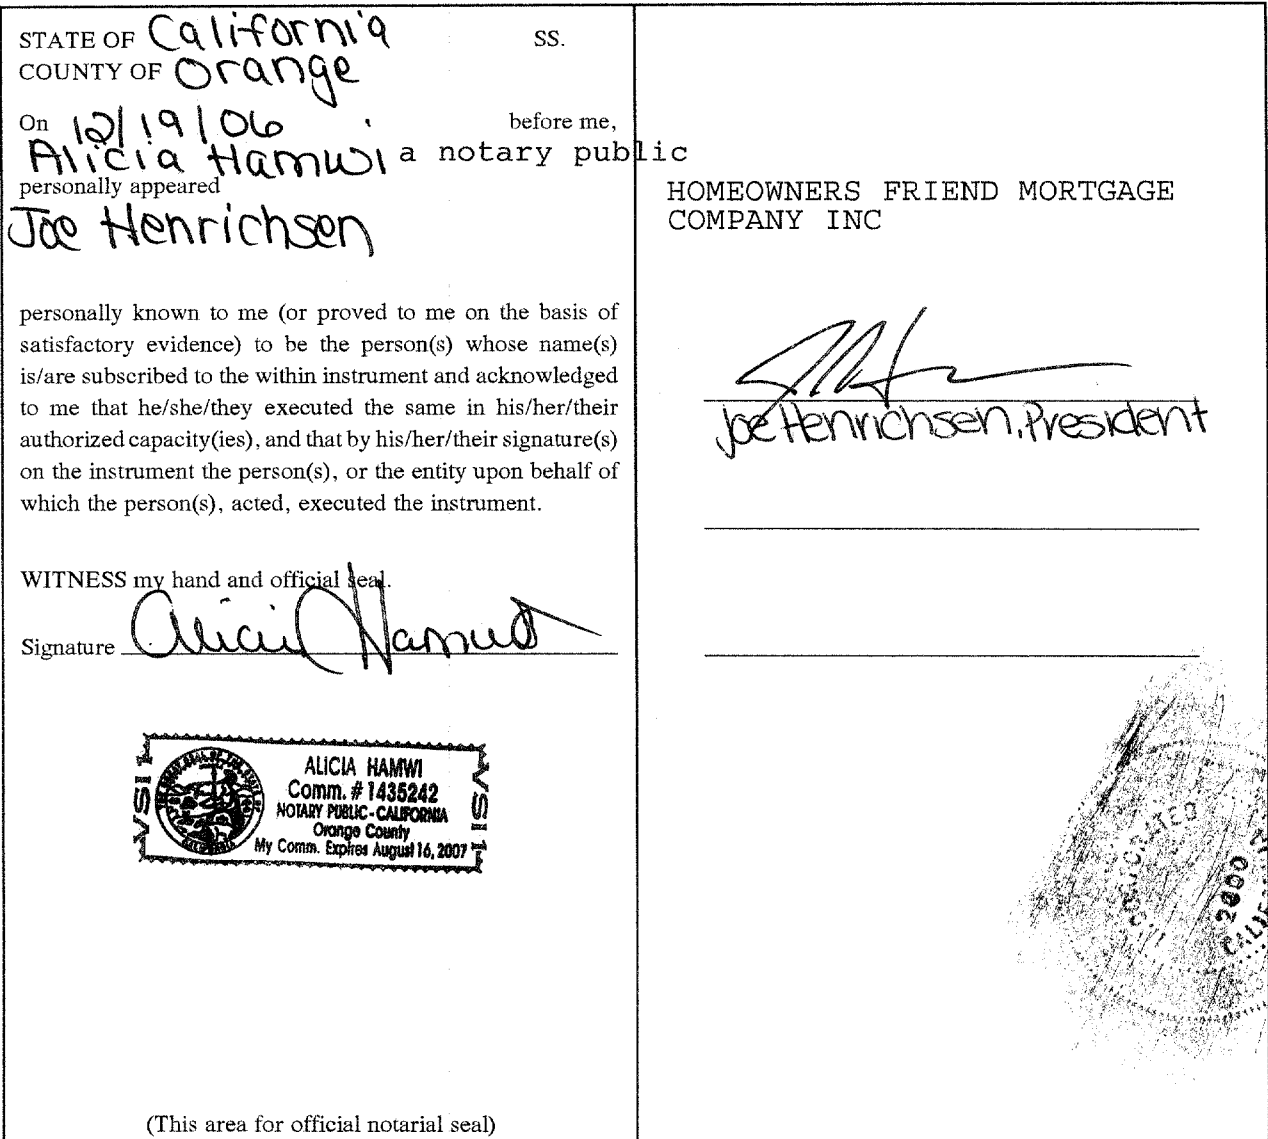 STATE OF California SS.
COUNTY OF Orange
On 12/19/06 before me,
Alicia Hamwi a notary public
personally appeared
Joe Henrichsen
personally known to me (or proved to me on the basis of
satisfactory evidence) to be the person(s) whose name(s)
is/are subscribed to the within instrument and acknowledged
to me that he/she/they executed the same in his/her/their
authorized capacity(ies), and that by his/her/their signature(s)
on the instrument the person(s), or the entity upon behalf of
which the person(s), acted, executed the instrument.
WITNESS my hand and official seal.
Signature Alicia Hamwi
ALICIA HAMWI
Comm. # 1435242
NOTARY PUBLIC - CALIFORNIA
Orange County
My Comm. Expires August 16, 2007
VSI1
VSI1
(This area for official notarial seal)
HOMEOWNERS FRIEND MORTGAGE
COMPANY INC
Joe Henrichsen, President
2000